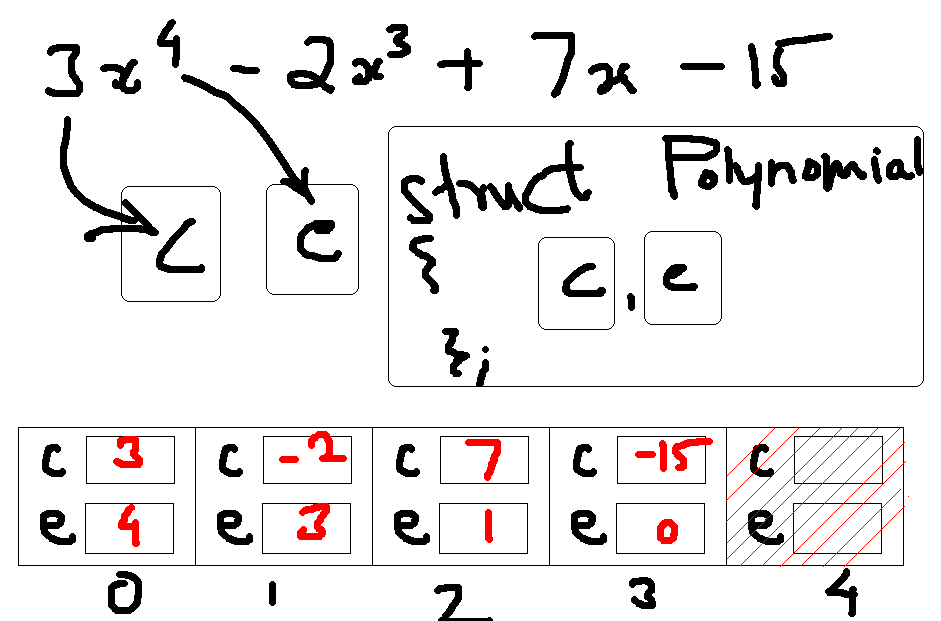 3x⁴ - 2x³ + 7x - 15
struct Polynomial
c e
{ c, e
};
c 3 c -2 c 7 c -15 c
e 4 e 3 e 1 e 0 e
0 1 2 3 4